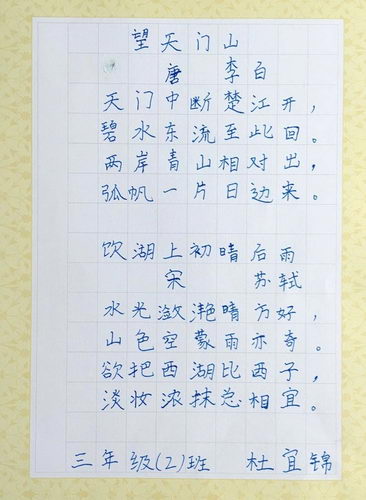 望天门山
唐 李白
天门中断楚江开，
碧水东流至此回。
两岸青山相对出，
孤帆一片日边来。
饮湖上初晴后雨
宋 苏轼
水光潋滟晴方好，
山色空蒙雨亦奇。
欲把西湖比西子，
淡妆浓抹总相宜。
三年级(2)班 杜宜锦